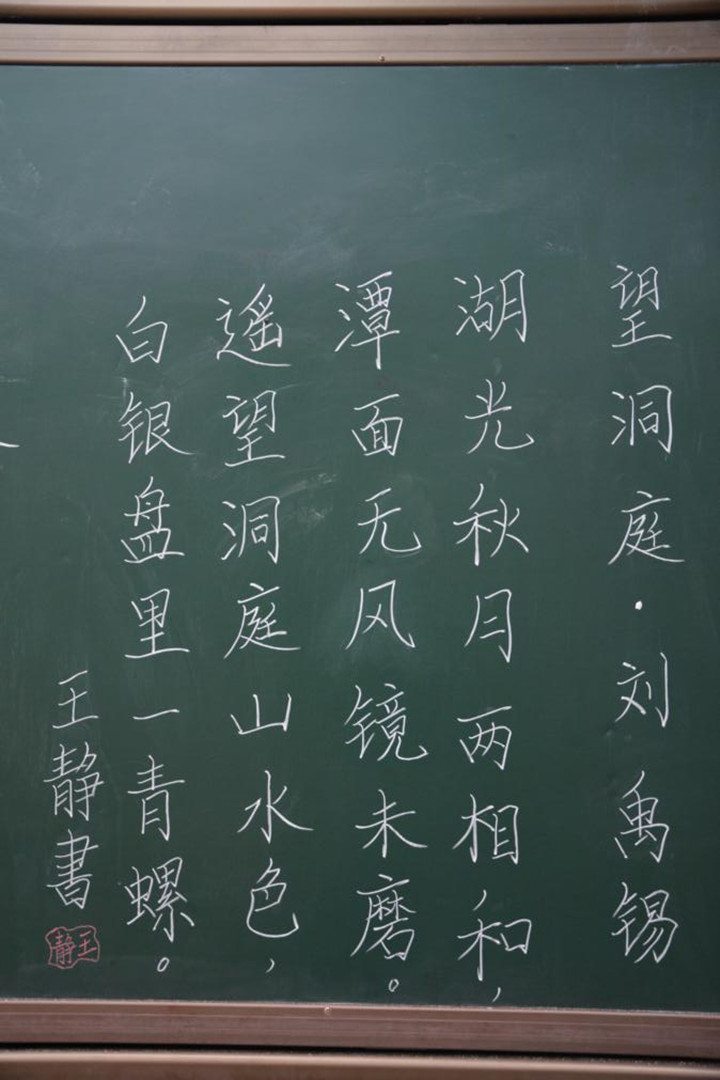 望洞庭·刘禹锡
湖光秋月两相和，
潭面无风镜未磨。
遥望洞庭山水色，
白银盘里一青螺。
王静書
王静